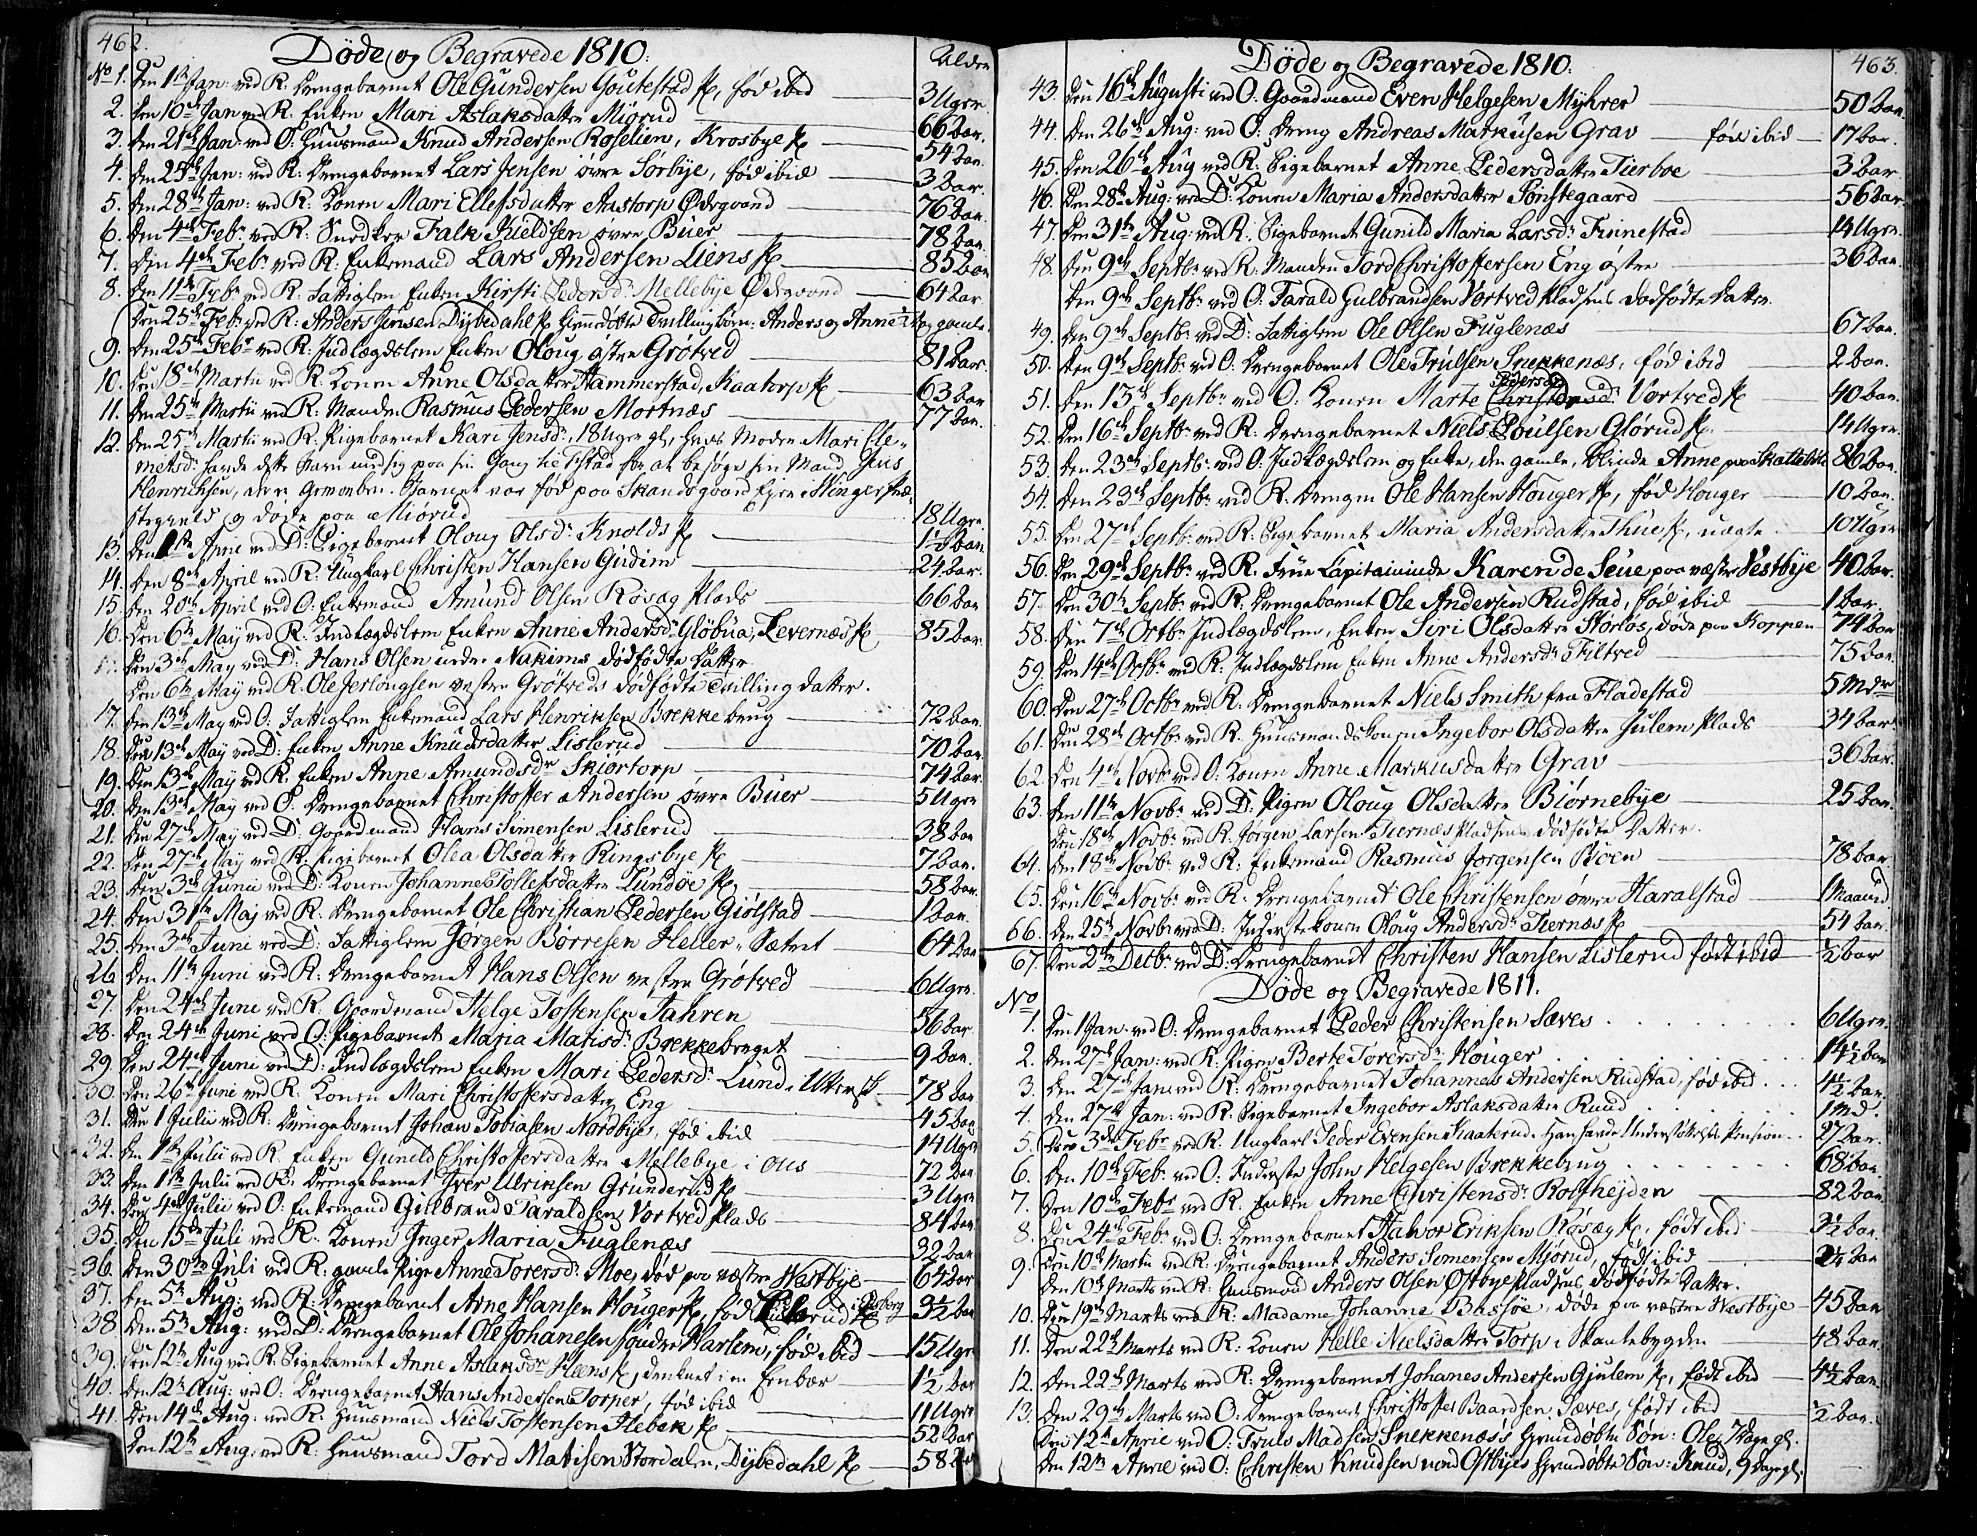 462.
Døde og Begravede 1810.
Alder
No 1. Den 1ste Jan: ved R: Drengebarnet Ole Gundersen Goutestad Pl, fød ibid 3 Uger
2. Den 10de Jan ved R. Enken Mari Aslaksdatter Miørud 66 Aar.
3. Den 21de Jan: ved O: Huusmand Knud Andersen Roselien, Krosbye Pl 54 Aar.
4. Den 25de Jan: ved R: Drengebarnet Lars Jensen øvre Sørbye, fød ibid 3 Aar.
5. Den 28de Jan: ved R: Konen Mari Ellefsdatter Aastorp Ødegaard 76 Aar.
6. Den 4de Febr: ved R: Snedker Falk Kieldsen øvre Buer 78 Aar.
7. Den 4de Febr: ved R: Enkemand Lars Andersen Liens Pl 85 Aar
8. Den 11te Febr: ved R: Fattiglem Enken Kirsti Pedersdr Mellebye Ødegaard 64 Aar.
Den 25de Feb: ved R: Anders Jensen Dybedahl Pl hiemedøbte Tvillingbørn: Anders og Anne 1/2 Dag gamle.
9. Den 25de Febr: ved R: Indlægdslem Enken Oloug østre Grøtved 81 Aar
10. Den 18de Martii ved R. Konen Anne Olsdatter Hammerstad, Kaatorp Pl 63 Aar
11. Den 25de Martii ved R: Manden Rasmus Pedersen Mortnæs 77 Aar.
12. Den 25de Martii ved R: Pigebarnet Kari Jensdr, 18 Uger gl, hvis Moder Mari Cle-
metsdr havde dette Barn med sig paa sin Gang til Fstad for at besøge sin Mand Jens
Henrichsen, der er Barnet var fød paa Skandsgaard Eier i Ringer Præ-
stegield og døde paa Miørud 18 Uger.
13. Den 1ste April ved D: Pigebarnet Oloug Olsdr Knolds Pl 1 1/2 Aar.
14. Den 8de April ved R: Ungkarl Christen Hansen Gudim 24 Aar.
15. Den 20de April ved O: Enkemand Amund Olsen Røsæg Plads 66 Aar
16. Den 6te May ved R: Indlægdslem Enken Anne Andersdr Gløbua, Levernæs Pl 85 Aar.
Den 3de May ved D: Hans Olsen nedre Nakims dødfødte Datter
Den 6te May ved R. Ole Jerlougsen vestre Grøtveds dødfødte Tvilling datter.
17. Den 13de May ved O: Fattiglem Enkemand Lars Henriksen Brekkebrug 72 Aar.
18. Den 13de May ved D: Enken Anne Knudsdatter Lislerud 70 Aar.
19. Den 13de May ved R. Enken Anne Amundsdr Skiortorp 74 Aar.
20. Den 13de May ved O: Drengebarnet Christoffer Andersen øvre Buer 5 Uger
21. Den 27de May ved D: Gaardmand Hans Simensen Lislerud 38 Aar
22. Den 27de May ved R. Pigebarnet Olea Olsdatter Ringsbye Pl 7 Aar.
23. Den 3de Junii ved D: Konen Johanne Tollefsdatter Lundøe Pl 58 Aar.
24. Den 31te Maj ved R: Drengebarnet Ole Christian Pedersen Giølstad 1 Aar.
25. Den 3de Juni ved D: Fattiglem Jørgen Børresen Heller-Sætret 64 Aar
26 Den 11te Juni ved R: Drengebarnet Hans Olsen vestre Grøtved 6 Uger.
27. Den 24de Juni ved R: Gaardmand Helge Tostensen Fahren 56 Aar
28. Den 24de Juni ved O: Pigebarnet Maria Matisdr Brekkebruget 9 Aar.
29. Den 24de Juni ved D: Indlægdslem Enken Mari Pedersdr Lund, 78 Aar
30. Den 26de Juni ved R. Konen Mari Christoffersdatter Eng 45 Aar
31. Den 1 Julii ved R: Drengebarnet Johan Tobiasen Nordbye, fød ibid 14 Uger
32. Den 1te Julii ved R. Enken Guneld Christoffersdatter Mellebye i Aas 72 Aar
33. Den 1te Julii ved R: Drengebarnet Iver Ulriksen Grunderud Pl 3 Uger
34. Den 4de Julii ved O: Enkemand Gulbrand Taraldsen Vortved Plads 84 Aar
35. Den 15de Juli ved R. Konen Inger Maria Fuglenæs 32 Aar
36. Den 30te Juli ved R: gamle Pige Anne Torersdr Moe, død paa væstre Westbye 64 Aar
37. Den 5te Aug: ved R: Drengebarnet Arne Hansen Houger Pl, fød 3 1/2 Aar
38 Den 5te Aug: ved D: Drengebarnet Ole Johanesen søndre Harlem, fød ibid 15 Uger
39. Den 12te Aug ved R: Pigebarnet Anne Aslaksdr Heens Pl, druknet i en Ern bær 1 1/2 Aar
40. Den 12te Aug: ved O: Drengebarnet Hans Andersen Torper, fød ibid 11 Uger
41. Den 14de Aug: ved R: Huusmand Niels Tostensen Hebek Pl 52 Aar
Den 12te Aug: ved R: Huusmand Tord Matisen Stordalen, Dybedahl Pl 58 Aar
463.
Døde og Begravede 1810.
43. Den 16de Augusti ved O: Gaardmand Even Helgesen Myhrer 50 Aar.
44. Den 26de Aug: ved O: Dreng Andreas Markusen Grav fød ibid 17 Aar.
45. Den 26de Aug ved R: Pigebarnet Anne Pedersdatter Tierboe 3 Aar
46. Den 28de Aug: ved D: Konen Maria Andersdatter Sønstegaard 56 Aar.
47. Den 31te Aug: ved R: Pigebarnet Gunild Maria Larsdr Finnestad 14 Uger.
48. Den 9de Septbr: ved R: Manden Tord Christoffersen Eng østre 36 Aar.
Den 9de Septbr: ved O: Tarald Gulbrandsen Vortved Pladsens dødfødte Datter.
49. Den 9de Septbr: ved D: Fattiglem Ole Olsen Fuglenæs 67 Aar.
50. Den 9de Septbr: ved O: Drengebarnet Ole Trulsen Snekkenæs, fød ibid 2 Aar.
51. Den 13de Septbr: ved O: Konen Marte Pedersdr Vortved Pl 40 Aar.
52. Den 16de Septbr: ved R: Drengebarnet Niels Poulsen Glørud Pl. 14 Uger.
53. Den 23de Septbr: ved O: Indlægdslem og Enke, den gamle, blinde Anne paa Skattebøl 86 Aar.
54. Den 23de Septbr: ved R: Drengen Ole Hansen Houger Pl, fød Houger 10 Aar.
55. Den 27de Septbr: ved R: Pigebarnet Maria Andersdatter Thue Pl, uægte 10 Uger
56. Den 29de Septbr: ved R: Frue Capitaininde Karen de Seue, paa væstre Vestbye 40 Aar.
57. Den 30te Septbr: ved R: Drengebarnet Ole Andersen Rudstad, fød ibid 1 Aar.
58. Den 7de Octbr: Indlægdslem, Enken Siri Olsdatter Storløs, døde paa Koppen 74 Aar
59. Den 14de Octbr: ved R: Indlægdslem Enken Anne Andersdr Filtved 75 Aar.
60. Den 27de Octbr: ved R: Drengebarnet Niels Smith fra Fladestad 5 Mdr
61. Den 28de Octbr: ved R. Huusmandskonen Ingebor Olsdatter Julem Plads 34 Aar
62. Den 4de Novbr: ved O: Konen Anne Markusdatter Grav 36 Aar.
63. Den 11te Novbr: ved D: Pigen Oloug Olsdatter Biørnebye 25 Aar.
Den 18de Novbr: ved R. Jørgen Larsen Tiernæs Pladsens dødfødte Datter.
64. Den 18de Novbr: ved R: Enkemand Rasmus Jørgensen Bøen 78 Aar
65. Den 16de Novbr: ved R: Drengebarnet Ole Christensen øvre Haralstad 1 Maaned
66. Den 25de Novbr: ved D: Inderstekonen Oloug Andersdr Tiernæs Pl 54 Aar
67. Den 2den Decbr: ved D: Drengebarnet Christen Hansen Lislerud født ibid 1/2 Aar
Døde og Begravede 1811.
No
1. Den 1 Jan: ved O: Drengebarnet Peder Christensen Sæves 6 Uger.
2. Den 27de Jan: ved R: Pigen Berte Torersdr Houger 14 1/2 Aar
3. Den 27de Jan: ved R: Drengebarnet Johannes Andersen Rudstad, fød ibid 4 1/2 Aar.
4. Den 27de Jan: ved R: Pigebarnet Ingebor Aslaksdatter Ruud 1 Md.
5. Den 3de Febr: ved R. Ungkarl Peder Evensen Kaaterud. Han havde Understøttelses Pension 27 Aar.
6. Den 10de Feb: ved O: Inderste John Helgesen Brekkebrug 68 Aar.
7. Den 10de Febr: ved R. Enken Anne Christensdr Rolfhejden 82 Aar
8. Den 24de Feb: ved O: Drengebarnet Halvor Eriksen Røsæg Pl, født ibid 3 1/2 Aar
9. Den 10de Martii ved R: Drengebarnet Anders Simensen Mjørud, født ibid 2 1/2 Aar
Den 10de Marts ved R: Huusmand Anders Olsen Østbye Pladsens dødfødte Datter.
10. Den 19de Marts ved R: Madame Johanne Bassøe, døde paa væstre Westbye 45 Aar
11. Den 22de Marts ved R: Konen Helle Nielsdatter Torp i Skantebygden 48 Aar.
12. Den 22de Marts ved R: Drengebarnet Johanes Andersen Gjulem Pl, født ibid 4 1/2 Aar.
13. Den 29de Marts ved O: Drengebarnet Christoffer Baardsen Sæves, født ibid 1/2 Aar.
Den 12te April ved O: Truls Madsen Snekkenæs's hiemdøbte Søn: Ole, 7 Dage gl.
Den 12te April ved O: Christen Knudsen nord Østbyes hiemdøbte Søn: Knud, 9 Dage gl.